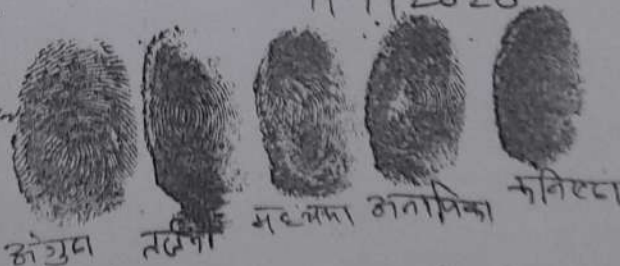 अंगुठा तर्जनी मध्यमा अनामिका कनिष्ठा